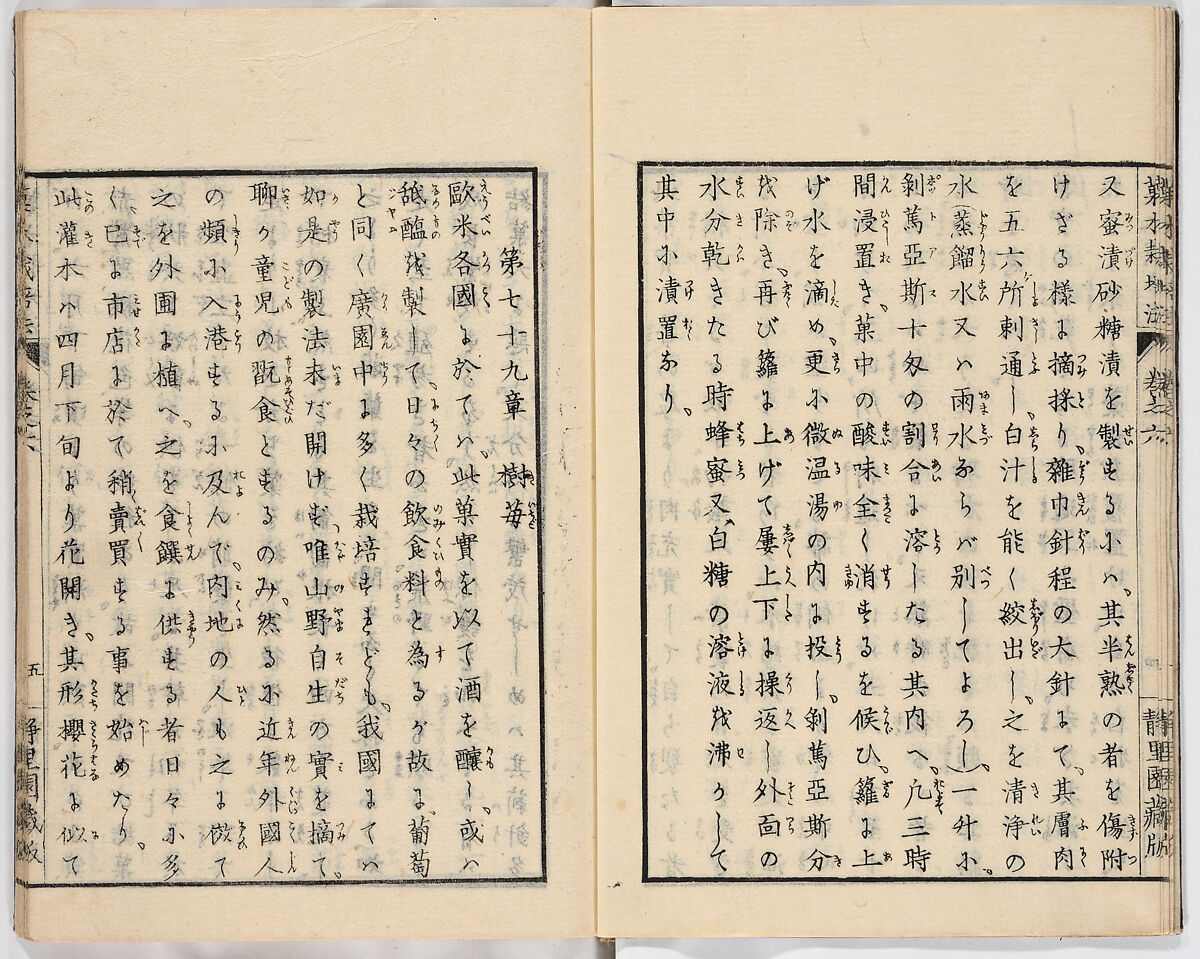 又蜜漬砂糖漬を製するには、其半熟の者を傷附
けざる様に摘採り、雑巾針程の大針にて、其膚肉
を五六所刺通し、白汁を能く絞出し、之を清浄の
水(蒸餾水又ハ雨水ならバ別してよろし)一升に、
剝篤亞斯十匁の割合に溶したる其内へ、凡三時
間浸置き、菓中の酸味全く消するを候ひ、籮に上
げ水を滴め、更に微温湯の内に投し、剝篤亞斯分
を除き、再び籮に上げて屢上下に操返し外面の
水分乾きたる時蜂蜜又、白糖の溶液を沸かして
其中に漬置なり。
第七十九章 樹苺
歐米各國に於てハ、此菓實を以て酒を釀し、或ハ
舐醢を製して、日々の飲食料と為るが故に、葡萄
と同く廣園中に多く栽培すれども、我國にてハ
如是の製法未だ開けず、唯山野自生の實を摘て、
聊か童児の翫食とするのみ、然るに近年外國人
の頻に入港するに及んで、内地の人も之に倣て
之を外圃に植へ、之を食饌に供する者日々に多
く、已に市店に於て稍賣買する事を始めたり。
此灌木ハ四月下旬より花開き、其形櫻花に似て
卷之六
五
静里園藏版